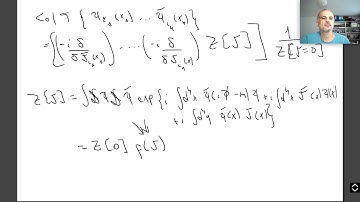 <0|T { ψ_{i_1}(x_1) ... ψ̄_{i_n}(x_n) }
= [ (-i δ/δJ̄_{i_1}(x_1)) ..... (-i δ/δJ_{i_n}(x_n)) Z[J] ] 1/Z[J=0]
Z[J] = ∫ ψ̄ exp{ i ∫d⁴x ψ̄(i∂̸ -m)ψ + i ∫d⁴x J̄(x)ψ(x)
+ i ∫d⁴x ψ̄(x) J(x) }
= Z[0] f(J)